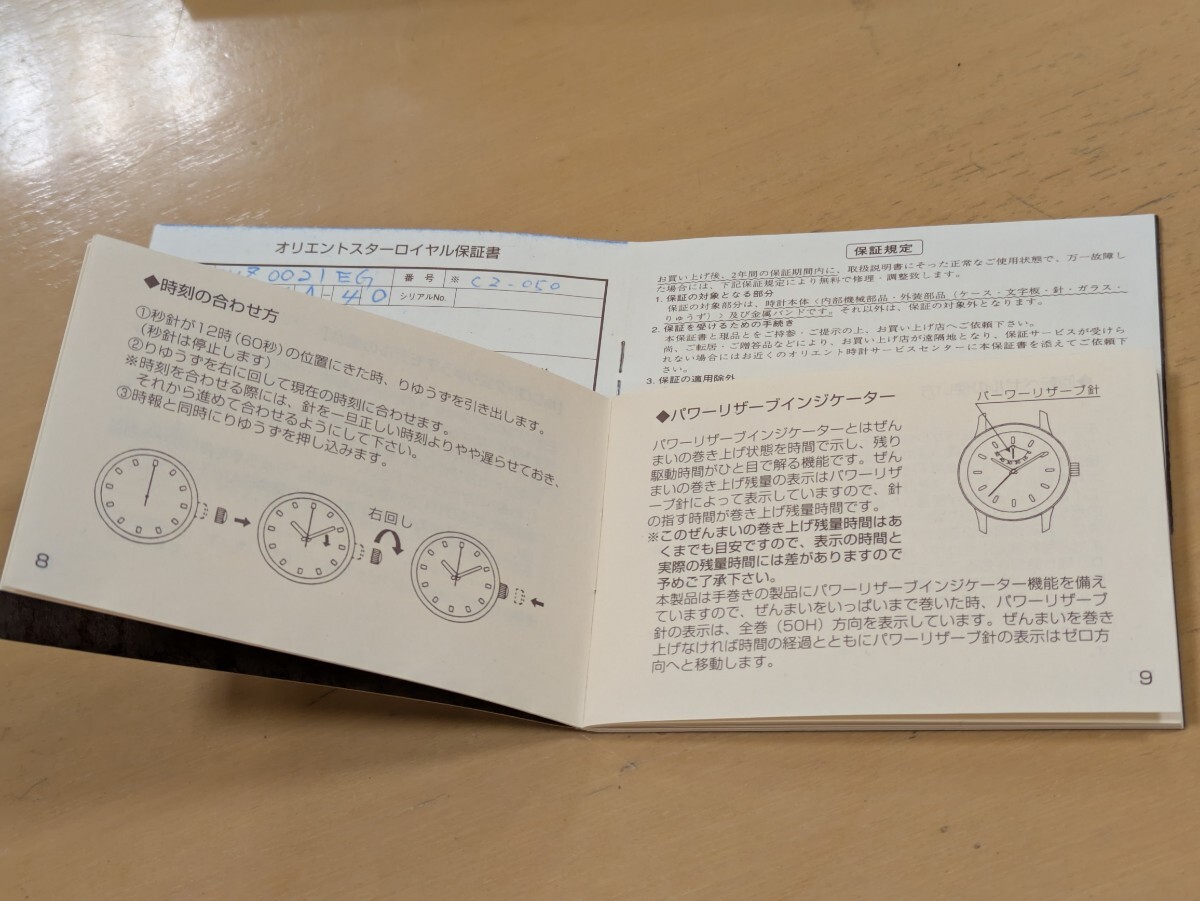 オリエントスターロイヤル保証書
0021EG
番号
※ C2-050
-40
シリアルNo.
保証規定
お買い上げ後、2年間の保証期間内に、取扱説明書にそった正常なご使用状態で、万一故障し
た場合には、下記保証規定により無料で修理・調整致します。
1. 保証の対象となる部分
保証の対象部分は、時計本体〈内部機械部品・外装部品（ケース・文字板・針・ガラス・
りゅうず）〉及び金属バンドです。それ以外は、保証の対象外となります。
2. 保証を受けるための手続き
本保証書と現品とをご持参・ご提示の上、お買い上げ店へご依頼下さい。
尚、ご転居・ご贈答品などにより、お買い上げ店が遠隔地となり、保証サービスが受けら
れない場合にはお近くのオリエント時計サービスセンターに本保証書を添えてご依頼下
さい。
3. 保証の適用除外
◆時刻の合わせ方
①秒針が12時（60秒）の位置にきた時、りゆうずを引き出します。
（秒針は停止します）
②りゆうずを右に回して現在の時刻に合わせます。
※時刻を合わせる際には、針を一旦正しい時刻よりやや遅らせておき、
それから進めて合わせるようにして下さい。
③時報と同時にりゆうずを押し込みます。
右回し
8
◆パワーリザーブインジケーター
パーワーリザーブ針
パワーリザーブインジケーターとはぜん
まいの巻き上げ状態を時間で示し、残り
駆動時間がひと目で解る機能です。ぜん
まいの巻き上げ残量の表示はパワーリザ
ーブ針によって表示していますので、針
の指す時間が巻き上げ残量時間です。
※このぜんまいの巻き上げ残量時間はあ
くまでも目安ですので、表示の時間と
実際の残量時間には差がありますので
予めご了承下さい。
本製品は手巻きの製品にパワーリザーブインジケーター機能を備え
ていますので、ぜんまいをいっぱいまで巻いた時、パワーリザーブ
針の表示は、全巻（50H）方向を表示しています。ぜんまいを巻き
上げなければ時間の経過とともにパワーリザーブ針の表示はゼロ方
向へと移動します。
9